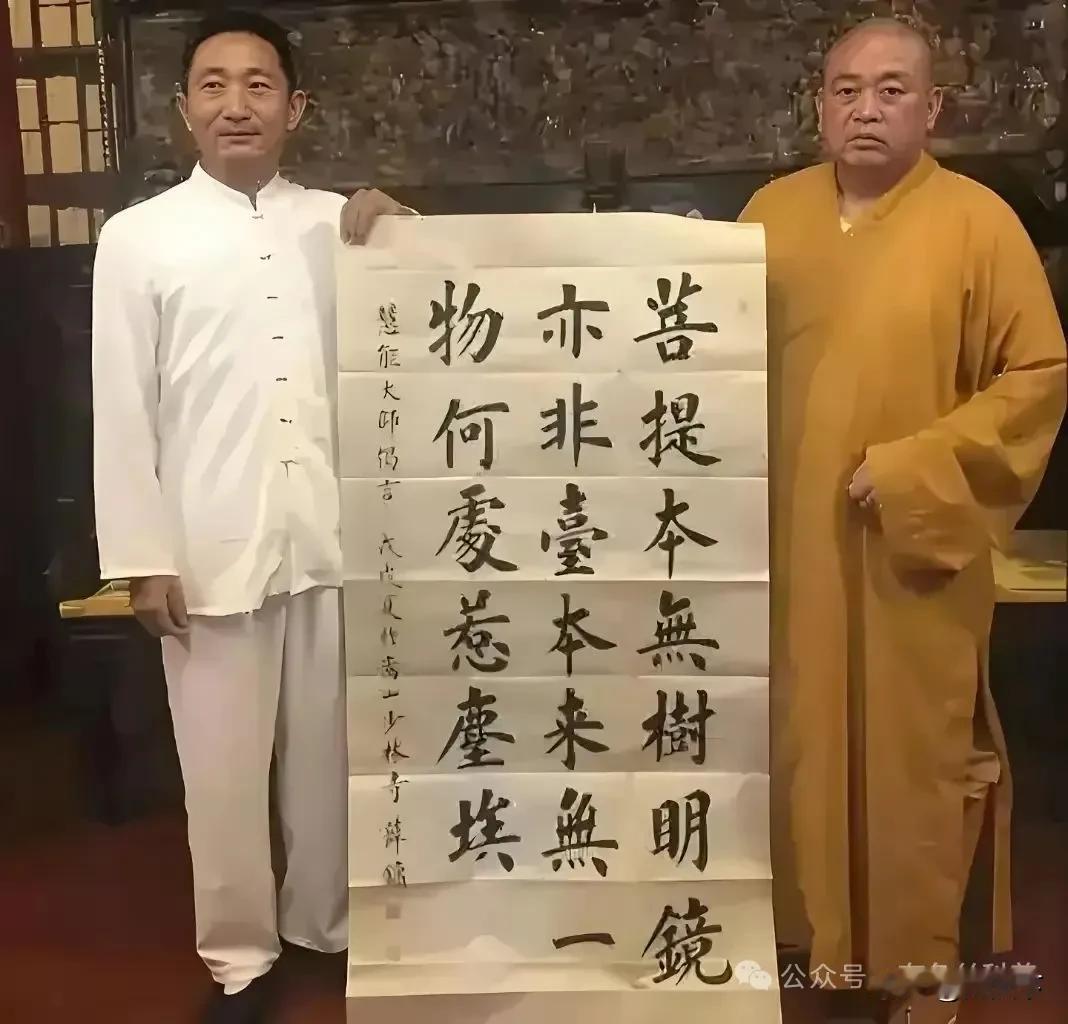 菩提本無樹明鏡
亦非臺本来無一
物何處惹塵埃
慧能大師偈言 戊戌夏於嵩山少林寺 薛
公众号